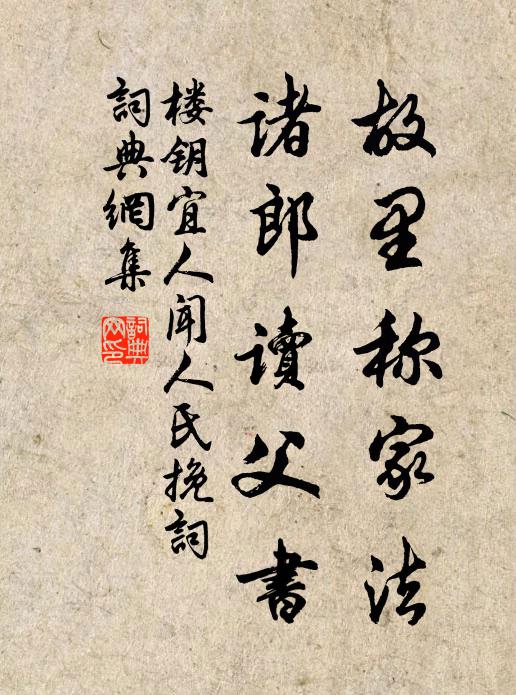 故里称家法
诸郎读父書
楼钥宜人闻人氏挽詞
詞典網集
詞典网印